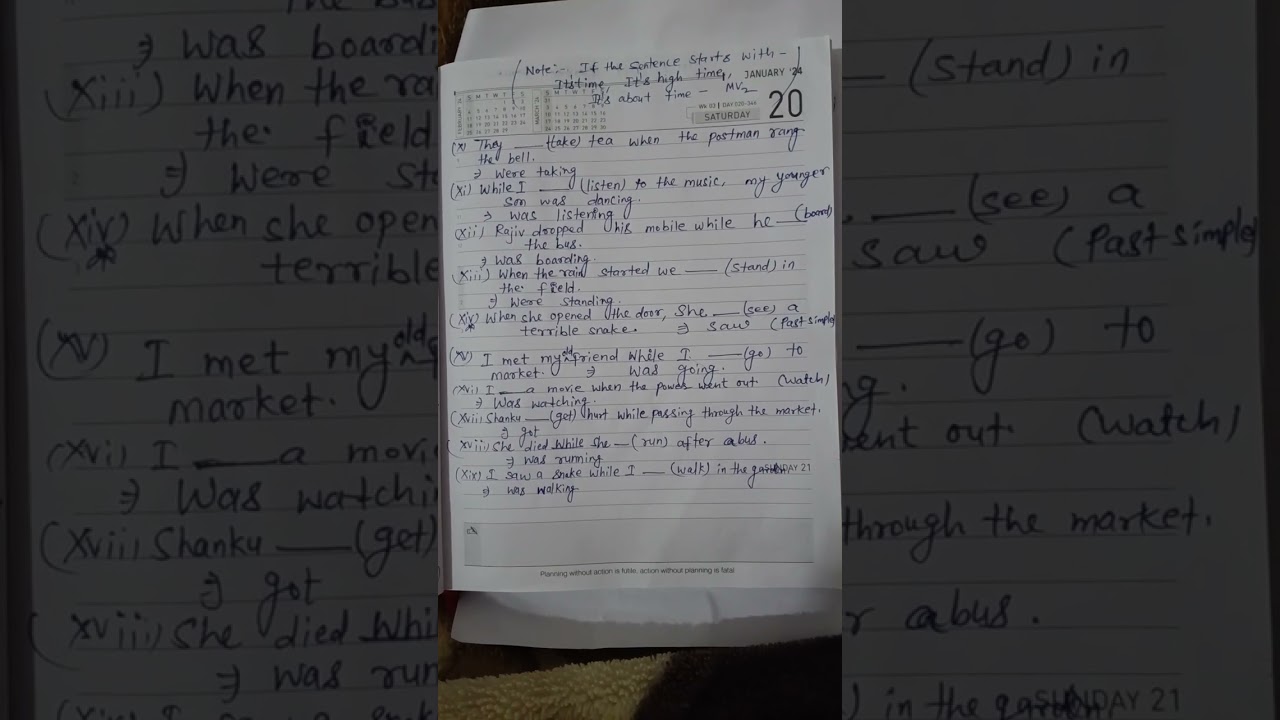 (Note:- If the sentence starts with -
It's time, It's high time,
It's about time - MV2)
JANUARY '24
Wk 03 | DAY 020-346
SATURDAY
20
(x) They ___ (take) tea when the postman rang
the bell.
⇒ were taking
(xi) While I ___ (listen) to the music, my younger
son was dancing.
⇒ was listening
(xii) Rajiv dropped his mobile while he ___ (board)
the bus.
⇒ was boarding.
(xiii) When the rain started we ___ (stand) in
the field.
⇒ were standing.
(xiv) When she opened the door, she ___ (see) a
terrible snake. ⇒ saw (Past simple)
(xv) I met my old friend while I ___ (go) to
market. ⇒ was going.
(xvi) I ___ a movie when the power went out. (watch)
⇒ Was watching.
(xvii) Shanku ___ (get) hurt while passing through the market.
⇒ got
(xviii) She died while she ___ (run) after a bus.
⇒ was running
(xix) I saw a snake while I ___ (walk) in the garden
SUNDAY 21
⇒ was walking
Planning without action is futile, action without planning is fatal